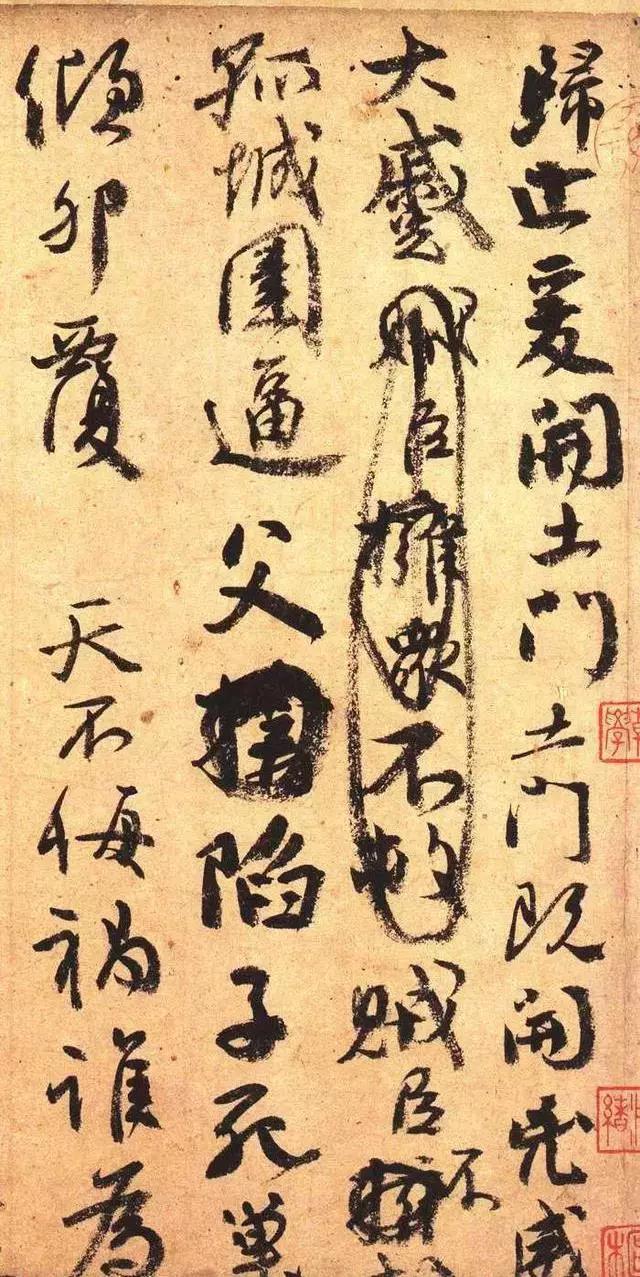 歸止爰開土門土門既開凶威
大蹙賊臣擁衆不救賊臣不
孤城圍逼父陷子死巢
傾卵覆天不悔禍誰為